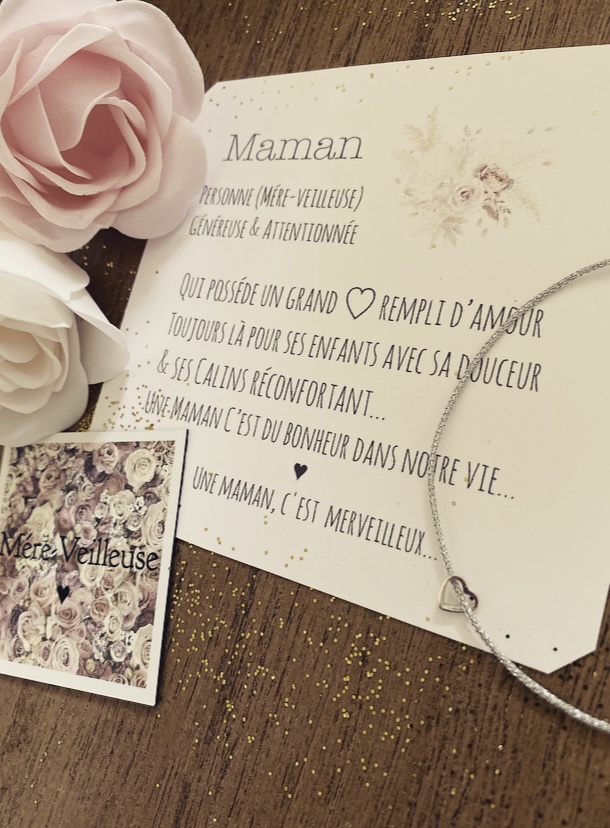 Maman
Personne (Mére-veilleuse)
Généreuse & Attentionnée
Qui posséde un grand ♡ rempli d'amour
Toujours là pour ses enfants avec sa douceur
& ses Calins réconfortant...
Une Maman C'est du bonheur dans notre vie...
♥
Une maman, c'est merveilleux...
Mére-Veilleuse
♥